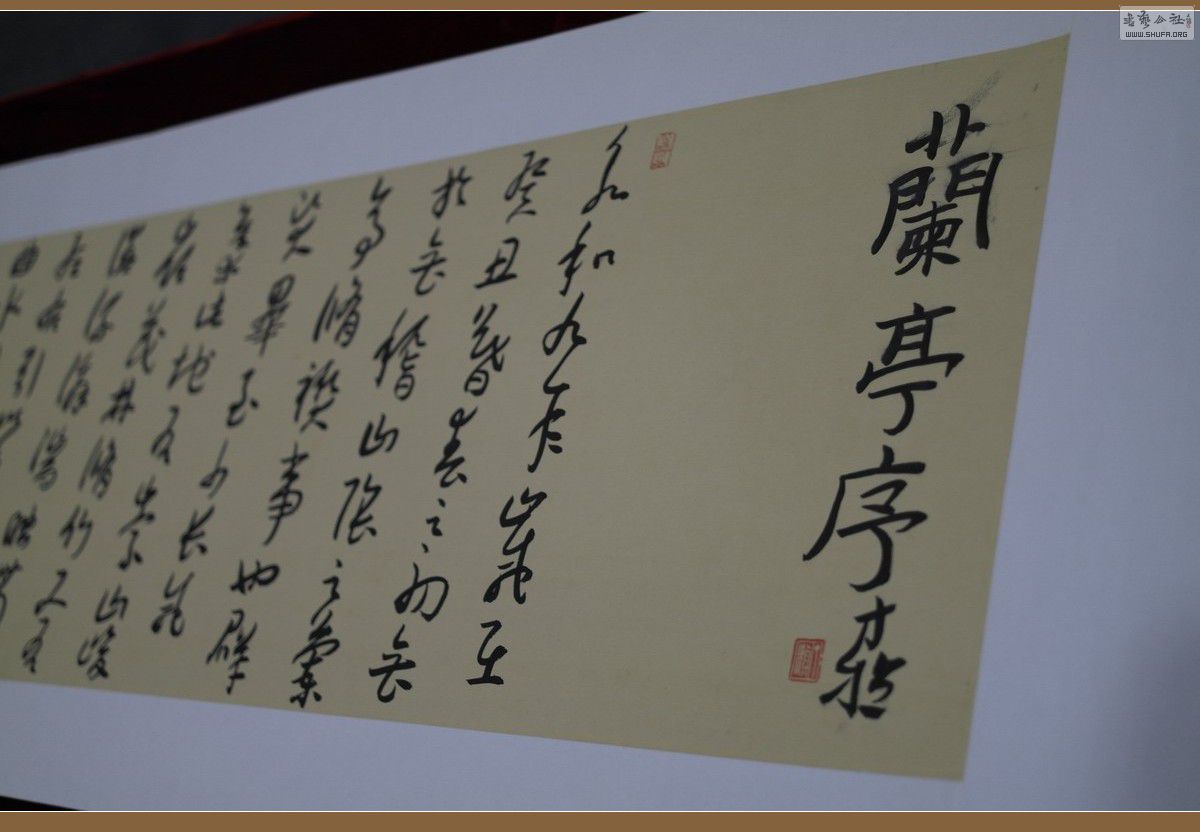 蘭亭序
永和九年歲在
癸丑暮春之初會
於會稽山陰之蘭
亭脩禊事也群
賢畢至少長咸
集此地有崇山峻
嶺茂林脩竹又有
清流激湍映帶
左右引
曲水
書藝公社
WWW.SHUFA.ORG